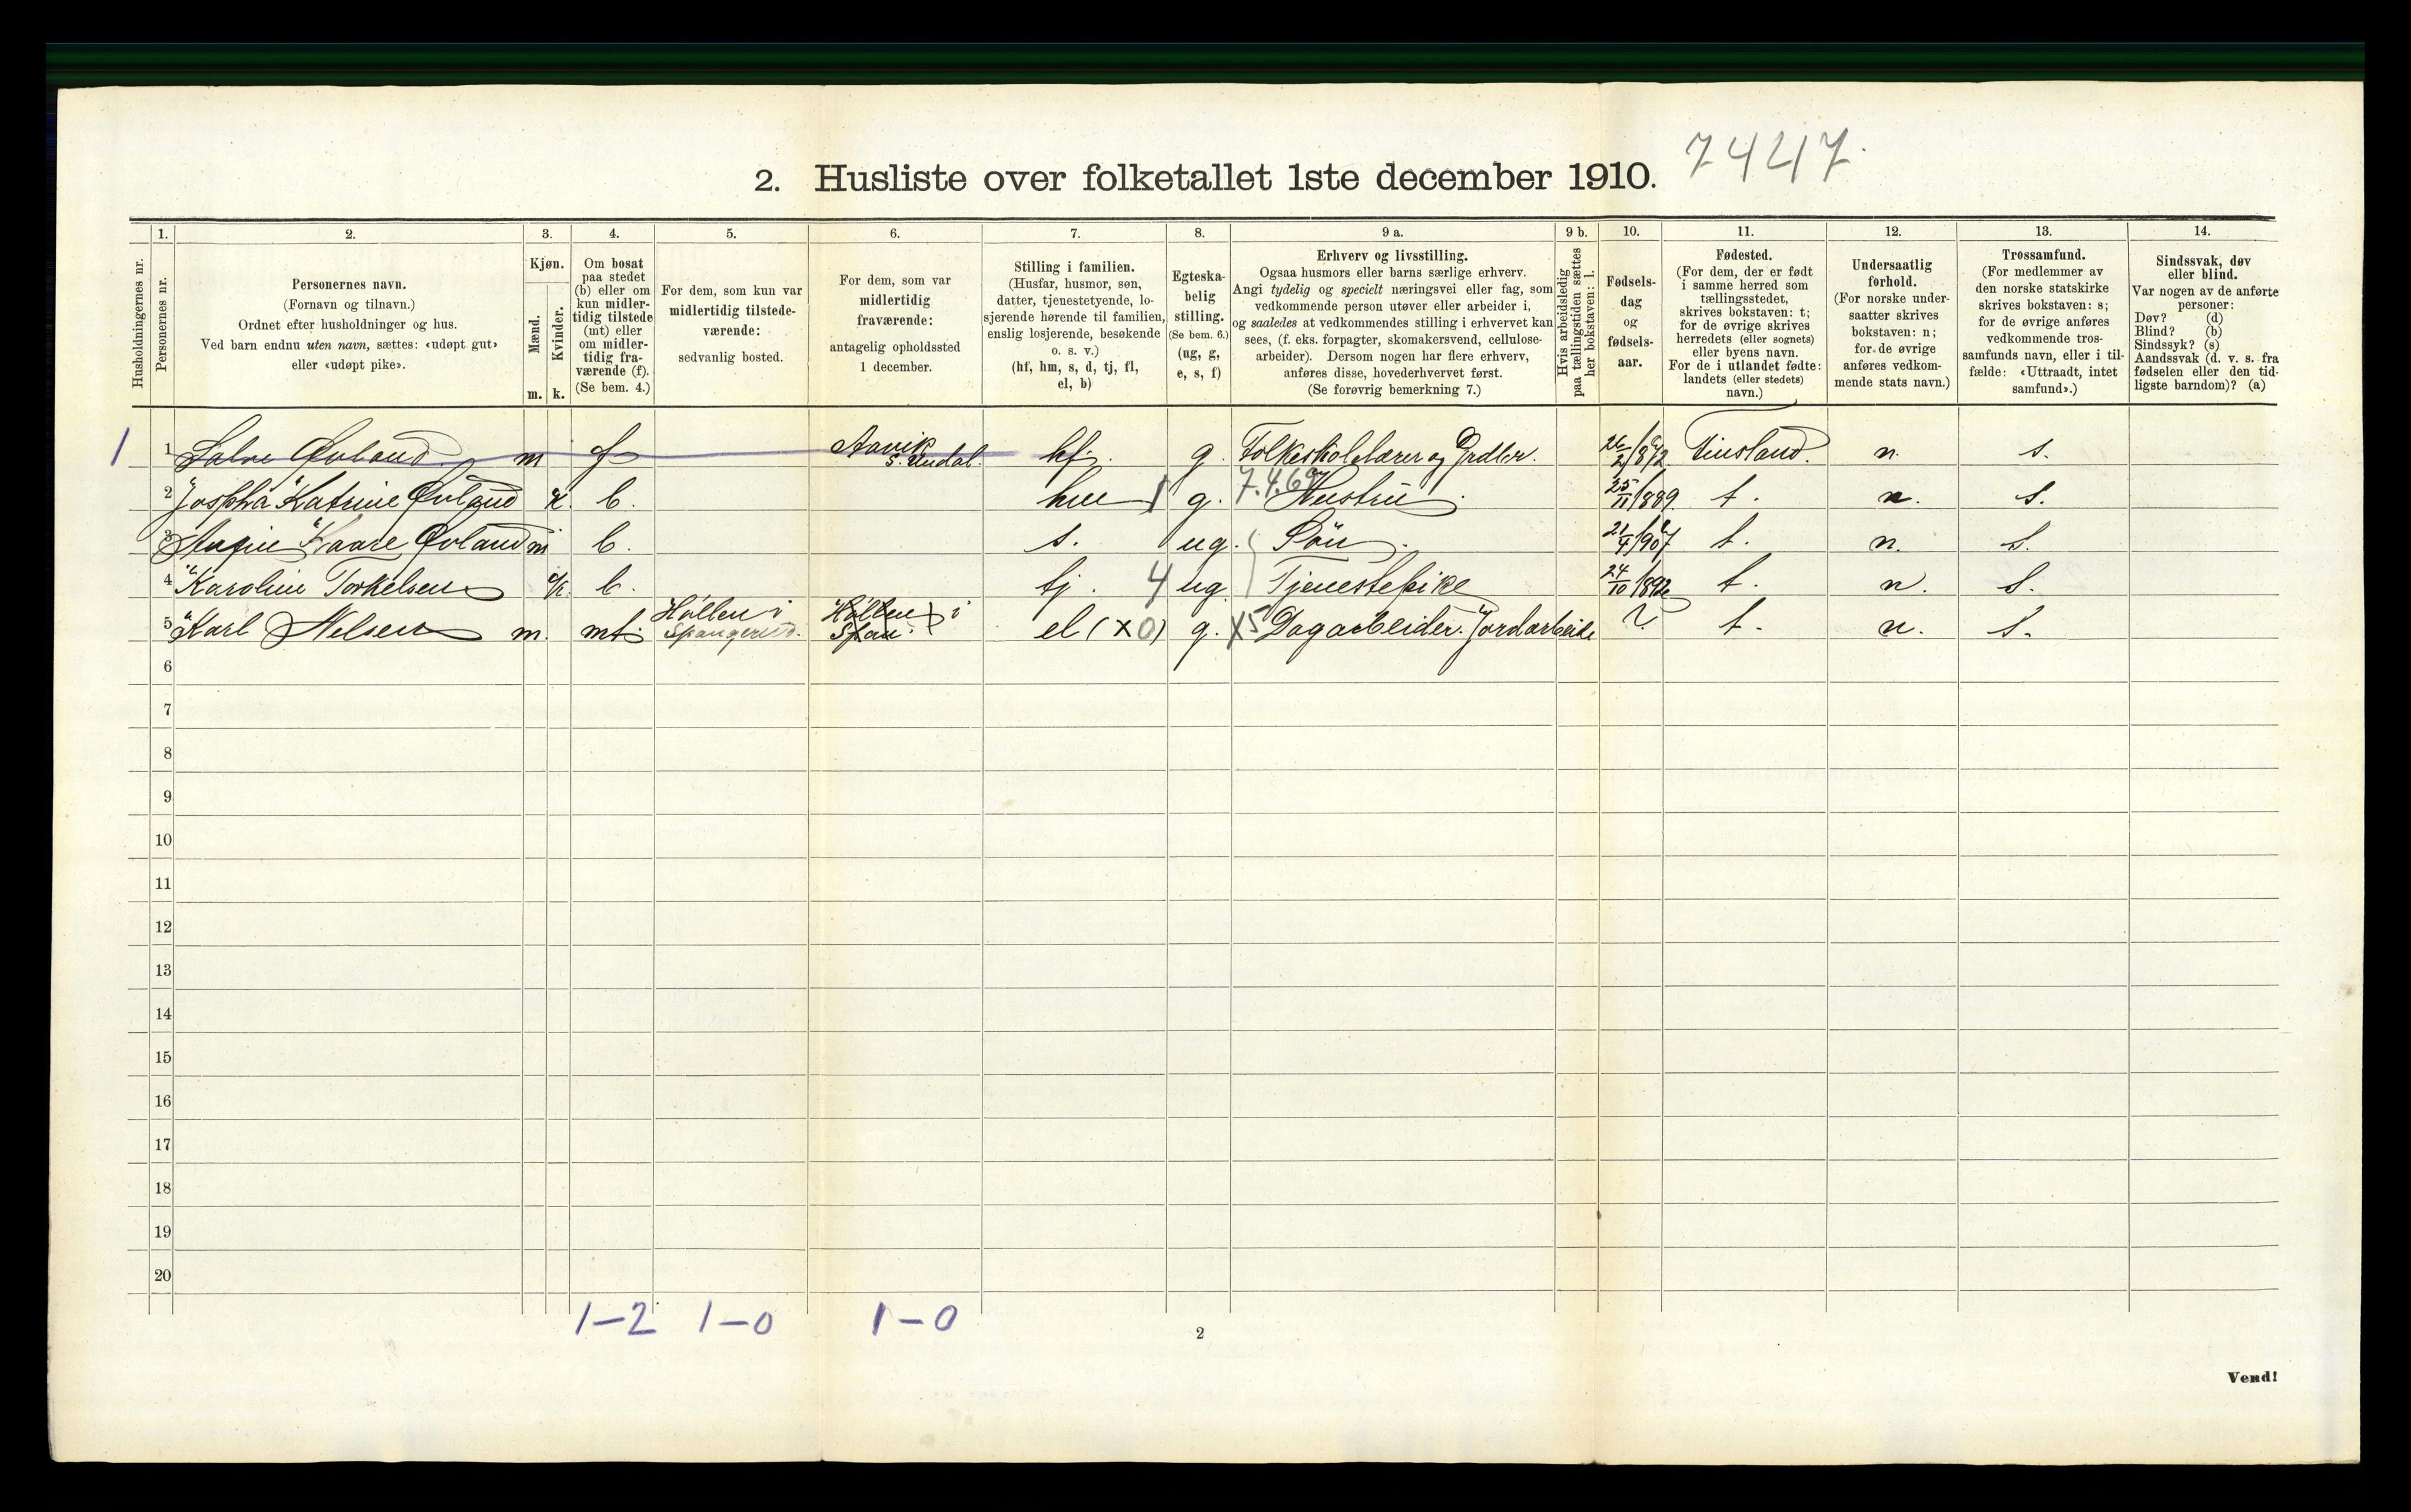 2. Husliste over folketallet 1ste december 1910. 7447
1. 2. 3. 4. 5. 6. 7. 8. 9 a. 9 b. 10. 11. 12. 13. 14.
Husholdningernes nr.
Personernes nr.
Personernes navn.
(Fornavn og tilnavn.)
Ordnet efter husholdninger og hus.
Ved barn endnu uten navn, sættes: «udøpt gut»
eller «udøpt pike».
Kjøn.
Mænd.
Kvinder.
m. k.
Om bosat
paa stedet
(b) eller om
kun midler-
tidig tilstede
(mt) eller
om midler-
tidig fra-
værende (f).
(Se bem. 4.)
For dem, som kun var
midlertidig tilstede-
værende:
sedvanlig bosted.
For dem, som var
midlertidig
fraværende:
antagelig opholdssted
1 december.
Stilling i familien.
(Husfar, husmor, søn,
datter, tjenestetyende, lo-
sjerende hørende til familien,
enslig losjerende, besøkende
o. s. v.)
(hf, hm, s, d, tj, fl,
el, b)
Egteska-
belig
stilling.
(Se bem. 6.)
(ug, g,
e, s, f)
Erhverv og livsstilling.
Ogsaa husmors eller barns særlige erhverv.
Angi tydelig og specielt næringsvei eller fag, som
vedkommende person utøver eller arbeider i,
og saaledes at vedkommendes stilling i erhvervet kan
sees, (f. eks. forpagter, skomakersvend, cellulose-
arbeider). Dersom nogen har flere erhverv,
anføres disse, hovederhvervet først.
(Se forøvrig bemerkning 7.)
Hvis arbeidsledig
paa tællingstiden sættes
her bokstaven: l.
Fødsels-
dag
og
fødsels-
aar.
Fødested.
(For dem, der er født
i samme herred som
tællingsstedet,
skrives bokstaven: t;
for de øvrige skrives
herredets (eller sognets)
eller byens navn.
For de i utlandet fødte:
landets (eller stedets)
navn.)
Undersaatlig
forhold.
(For norske under-
saatter skrives
bokstaven: n;
for de øvrige
anføres vedkom-
mende stats navn.)
Trossamfund.
(For medlemmer av
den norske statskirke
skrives bokstaven: s;
for de øvrige anføres
vedkommende tros-
samfunds navn, eller i til-
fælde: «Uttraadt, intet
samfund».)
Sindssvak, døv
eller blind.
Var nogen av de anførte
personer:
Døv? (d)
Blind? (b)
Sindssyk? (s)
Aandssvak (d. v. s. fra
fødselen eller den tid-
ligste barndom)? (a)
1 1 Salve Øvland m f Aavik S. Undal. hf. g. Folkeskolelærer og Grdbr. 26/2 1872 Finsland. n. s.
2 Josepha Katrine Øvland k. b. hm 1 g. 7.4.69 Hustru. 25/11 1889. t. n. s.
3 Kaare Øvland m b. s. ug. Søn. 21/4 1907 t. n. s.
4 Karoline Torkelsen k. b. tj. 4 ug. Tjenestepike 24/10 1892 t. n. s.
5 Karl Nelsen m. mt Høllen i Spangereid. Høllen i Span. el (x0) g. X5 Dagarbeider. Jordarbeide ? t. n. s.
6
7
8
9
10
11
12
13
14
15
16
17
18
19
20
1-2 1-0 1-0
2
Vend!